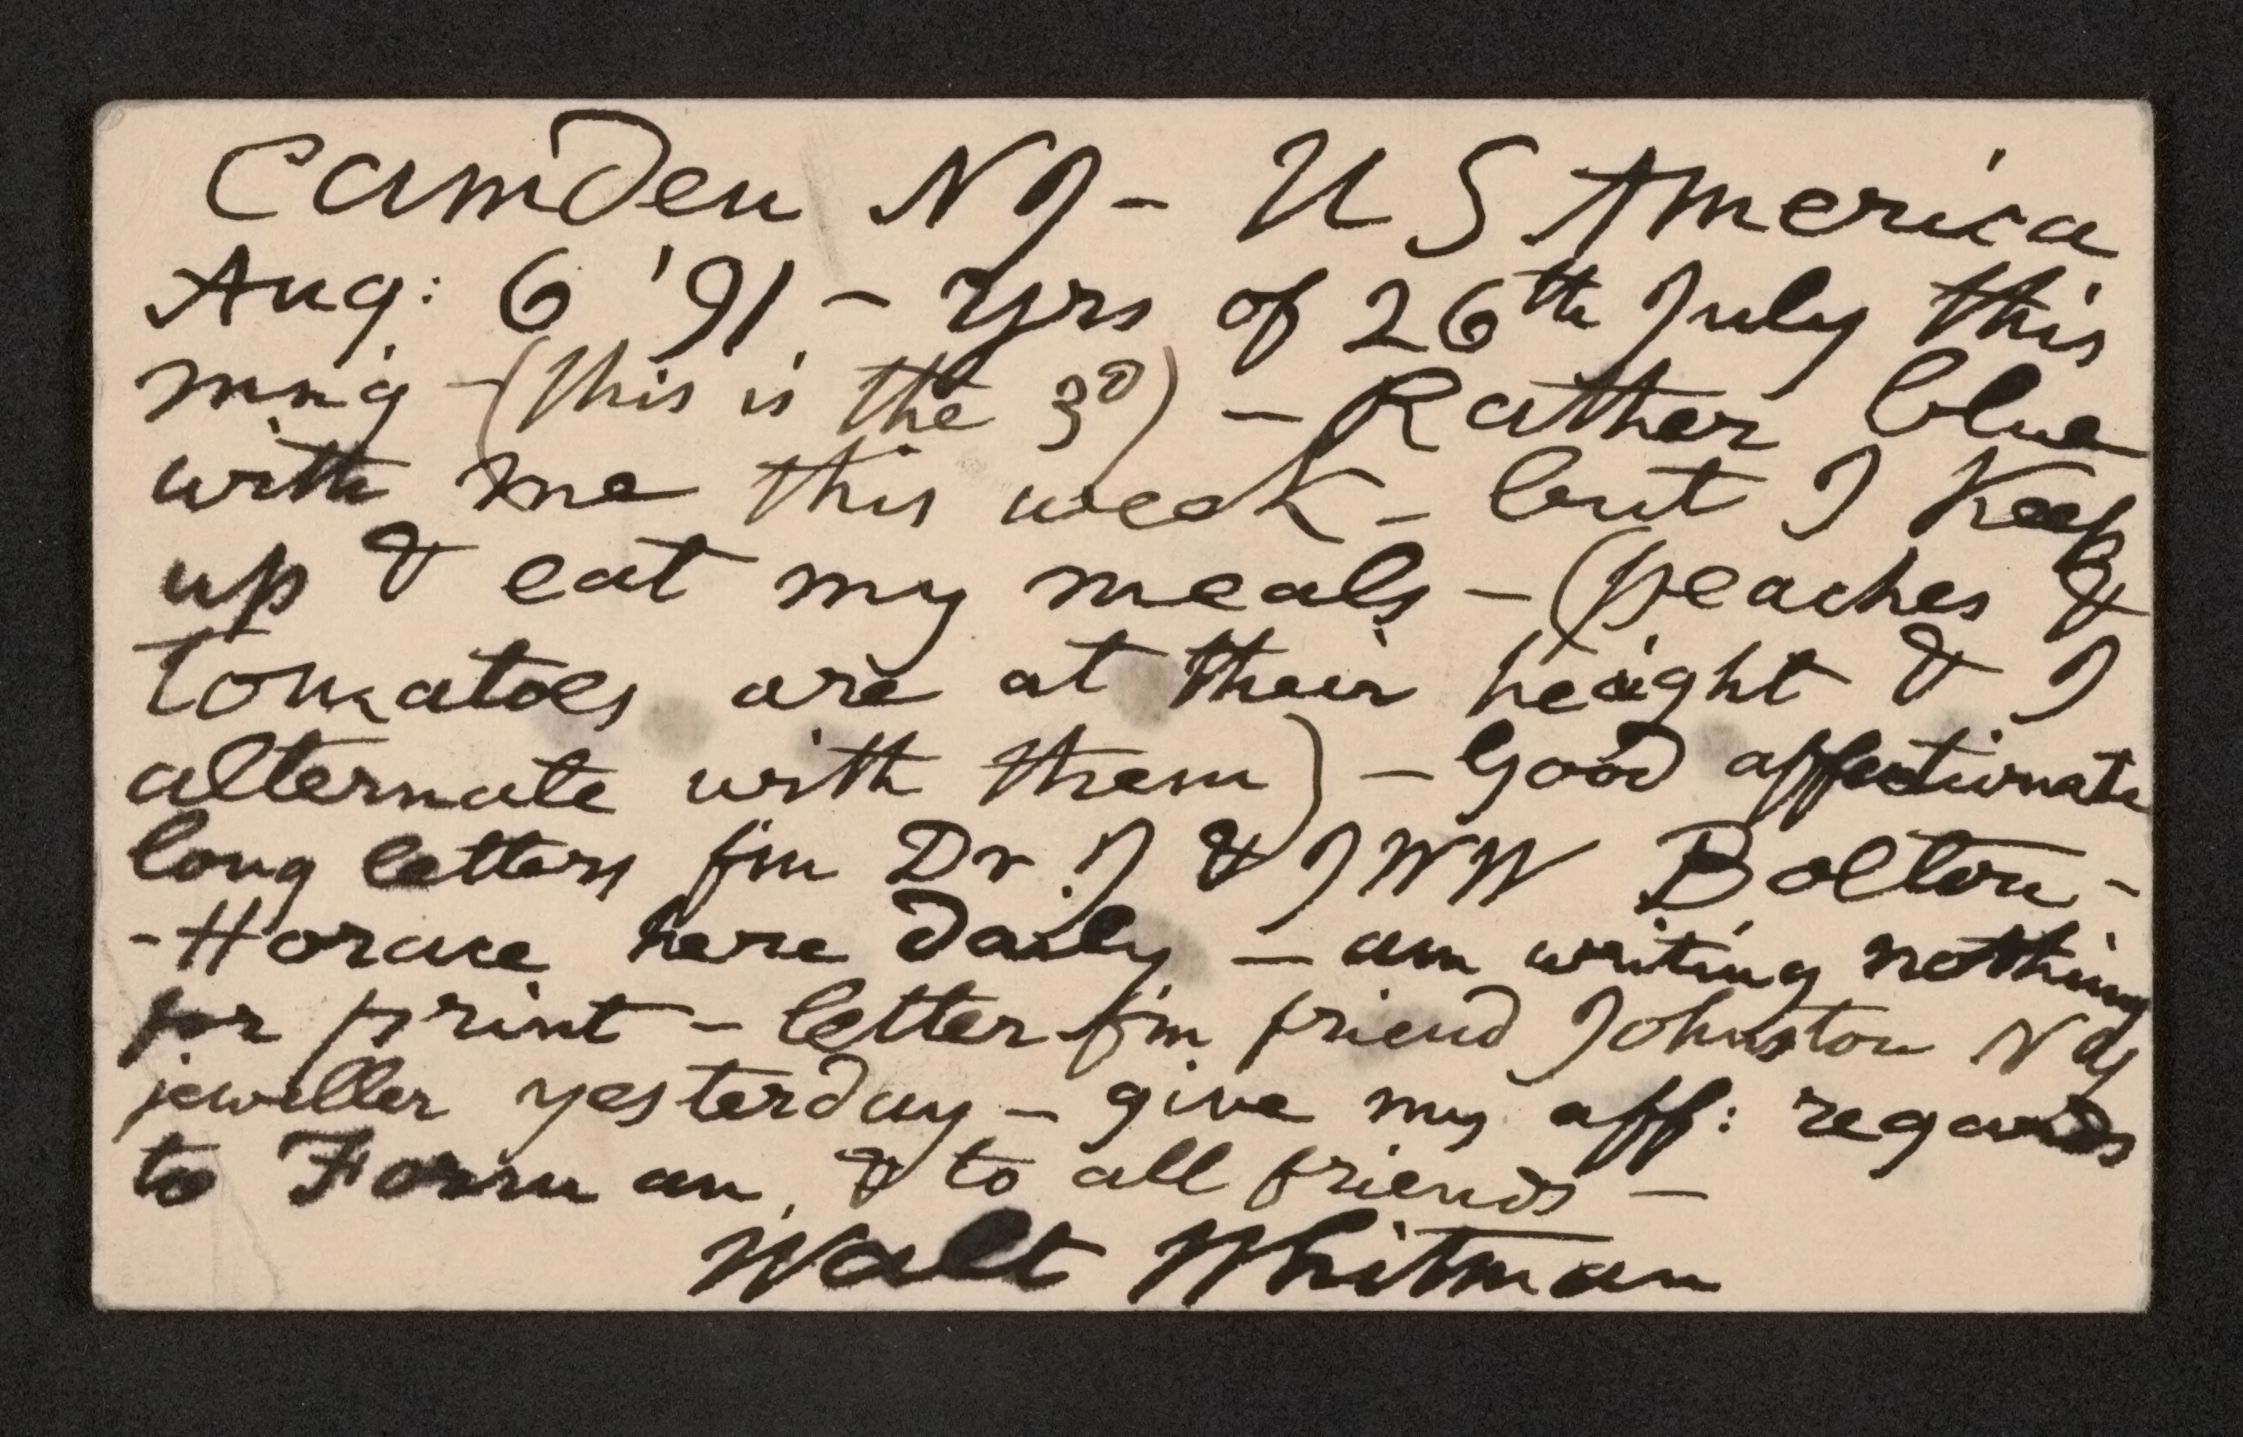 Camden NJ - U S America
Aug: 6 '91 - Yrs of 26th July this
mn'g - (this is the 3d) - Rather blue
with me this week - but I keep
up & eat my meals - (peaches &
tomatoes are at their height & I
alternate with them) - Good affectionate
long letters f'm Dr J & J W W Bolton -
- Horace here daily - am writing nothing
for print - letter f'm friend Johnston N Y
jeweller yesterday - give my aff: regards
to Forman & to all friends -
Walt Whitman